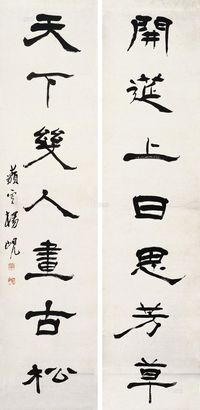 開筵上日思芳草
天下幾人畫古松
藐翁楊峴